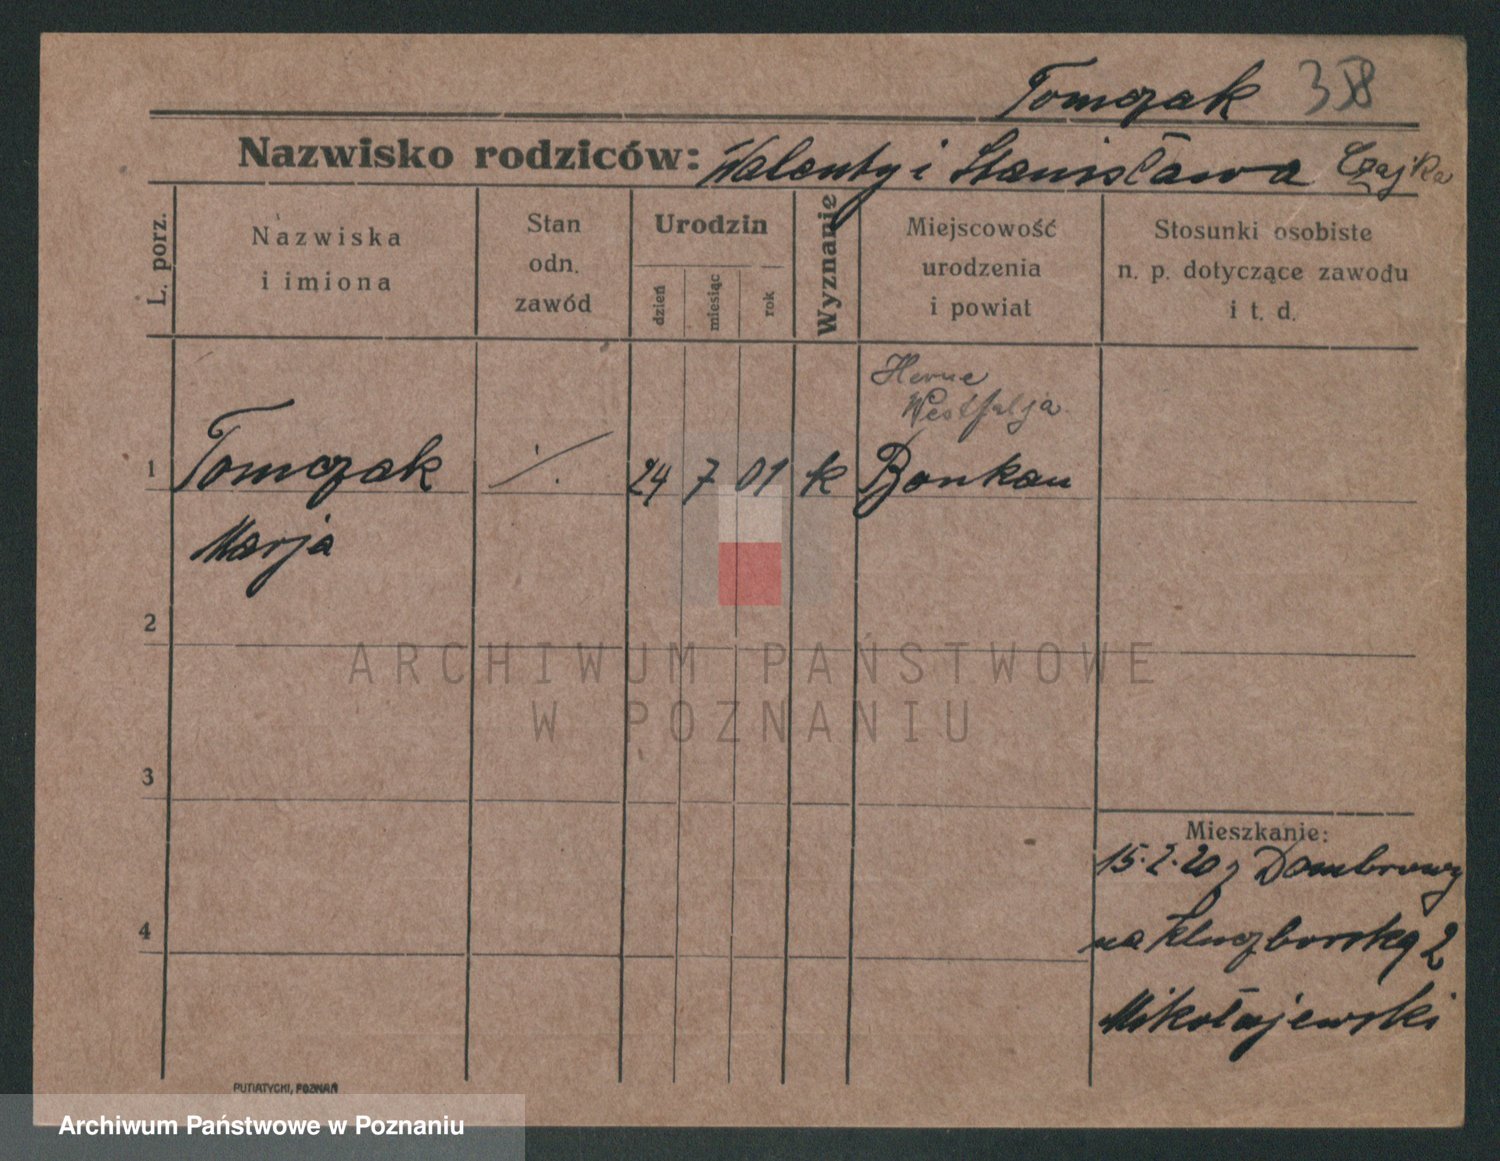 Tomczak 358
Nazwisko rodziców: Walenty i Stanisława Czajka
L. porz.
Nazwiska
i imiona
Stan
odn.
zawód
Urodzin
dzień
miesiąc
rok
Wyznanie
Miejscowość
urodzenia
i powiat
Stosunki osobiste
n. p. dotyczące zawodu
i t. d.
Herne
Westfalja
1 Tomczak ./. 24 7 01 k Bonkau
Marja
2
ARCHIWUM PAŃSTWOWE
W POZNANIU
3
Mieszkanie:
15.2.20 z Dombrowy
4
na Kluczborską 2
Mikołajewski
PUTIATYCKI, POZNAŃ
Archiwum Państwowe w Poznaniu